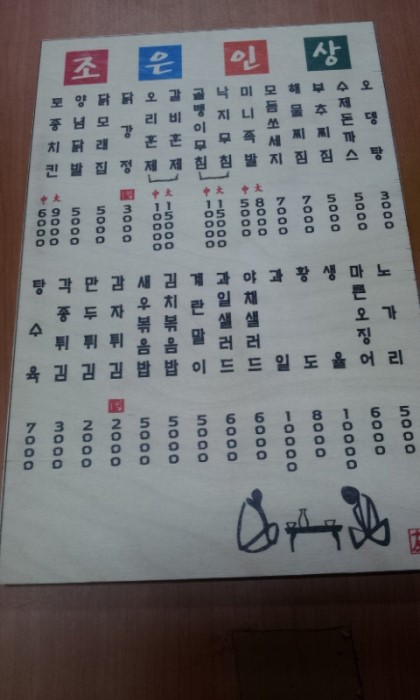 조은인상
토종치킨 中 6000 大 9000
양념닭발 5000
닭모래집 5000
닭강정 3000
오리훈제 갈비훈제 中 10000 大 15000
골뱅이무침 낙지무침 中 10000 大 15000
미니족발 中 5000 大 8000
모듬쏘세지 7000
해물찌짐 7000
부추찌짐 5000
수제돈까스 5000
오뎅탕 3000
탕수육 7000
각종튀김 3000
만두튀김 2000
감자튀김 2000
새우볶음밥 5000
김치볶음밥 5000
계란말이 5000
과일샐러드 6000
야채샐러드 6000
과일 10000
황도 8000
생율 10000
마른오징어 6000
노가리 5000